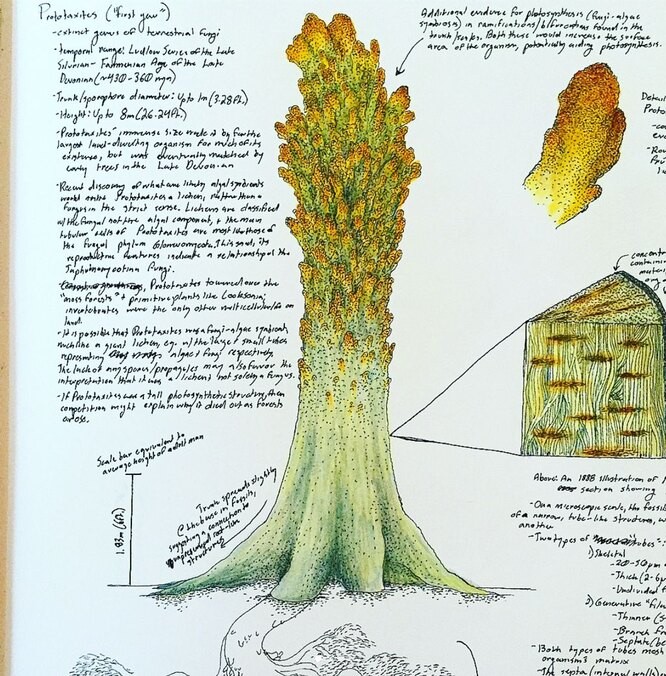 Prototaxites ("first yew")
-extinct genus of terrestrial fungi
-temporal range: Ludlow Series of the Late
Silurian - Fammenian Age of the Late
Devonian (~430-360 mya)
-Trunk/sporophore diameter: Up to 1m (3.28ft.)
-Height: Up to 8m (26.24ft.)
-Prototaxites' immense size made it by far the
largest land-dwelling organism for much of its
existence, but was eventually matched by
early trees in the Late Devonian
-Recent discovery of what are likely algal symbionts
would make Prototaxites a lichen, rather than a
fungus in the strict sense. Lichens are classified
w/the fungal not the algal component, & the main
tubular cells of Prototaxites are most like those of
the fungal phylum Glomeromycota. This said, its
reproductive features indicate a relationship to the
Taphrinomycotina fungi.
Prototaxites towered over the
"moss forests" & primitive plants like Cooksonia;
invertebrates were the only other multicellular life on
land.
-It is possible that Prototaxites was a fungi-algae symbiont,
much like a giant lichen, e.g. w/the large & small tubes
representing algae & fungi respectively.
The lack of any spores/propagules may also favor the
interpretation that it was a lichen & not solely a fungus.
-If Prototaxites was a tall photosynthetic structure, then
competition might explain why it died out as forests
arose.
Additional evidence for photosynthesis (fungi-algae
symbiosis) is ramifications/bifurcations found in the
trunk/ Both these would increase the surface
area of the organism, potentially aiding photosynthesis.
Detai
Proto
-co
eve
-Rou
fru
concentr
containin
mater
org
Scale bar equivalent to
average height of adult man
1.83m (6ft.)
Trunk spreads slightly
@ the base in fossils,
suggesting a connection to
unpreserved root-like
structures
Above: An 1888 illustration of
section showing
-On a microscopic scale, the fossils
of a narrow, tube-like structures, w
another
-Two types of "tubes":
1) Skeletal
-20-50μm
-Thick (2-6μ
-Undivided
2) Generative "fila
-Thinner (5
-Branch fr
-Septate (be
-Both types of tubes mesh
organism's matrix
-The septa (internal walls)